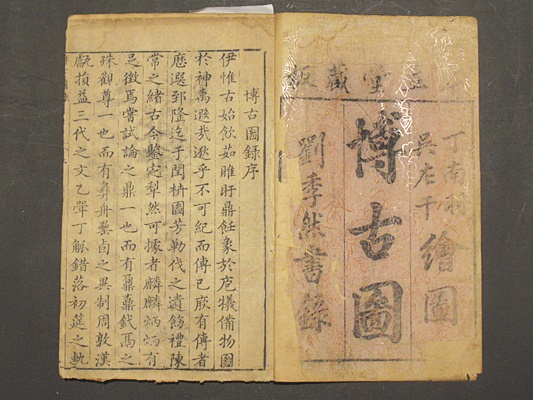 堂藏板
丁南羽
吳左千
繪圖
博古圖
劉季然書錄
博古圖錄序
伊惟古始飲茹睢盱鼎飪象於庖犧備物圖
於神禹遐哉邈乎不可紀而傳已厥有傳者
歷選郅隆迄于閏枿圖芳勒伐之遺飭禮陳
常之緒古今鑒定犁然可據者麟麟炳炳有
足徵焉嘗試論之鼎一也而有鼐鼒釴鬲之
殊觀尊一也而有彝舟罍卣之異制周敦漢
甗損益三代之文乙斝丁觚錯落初筵之軌